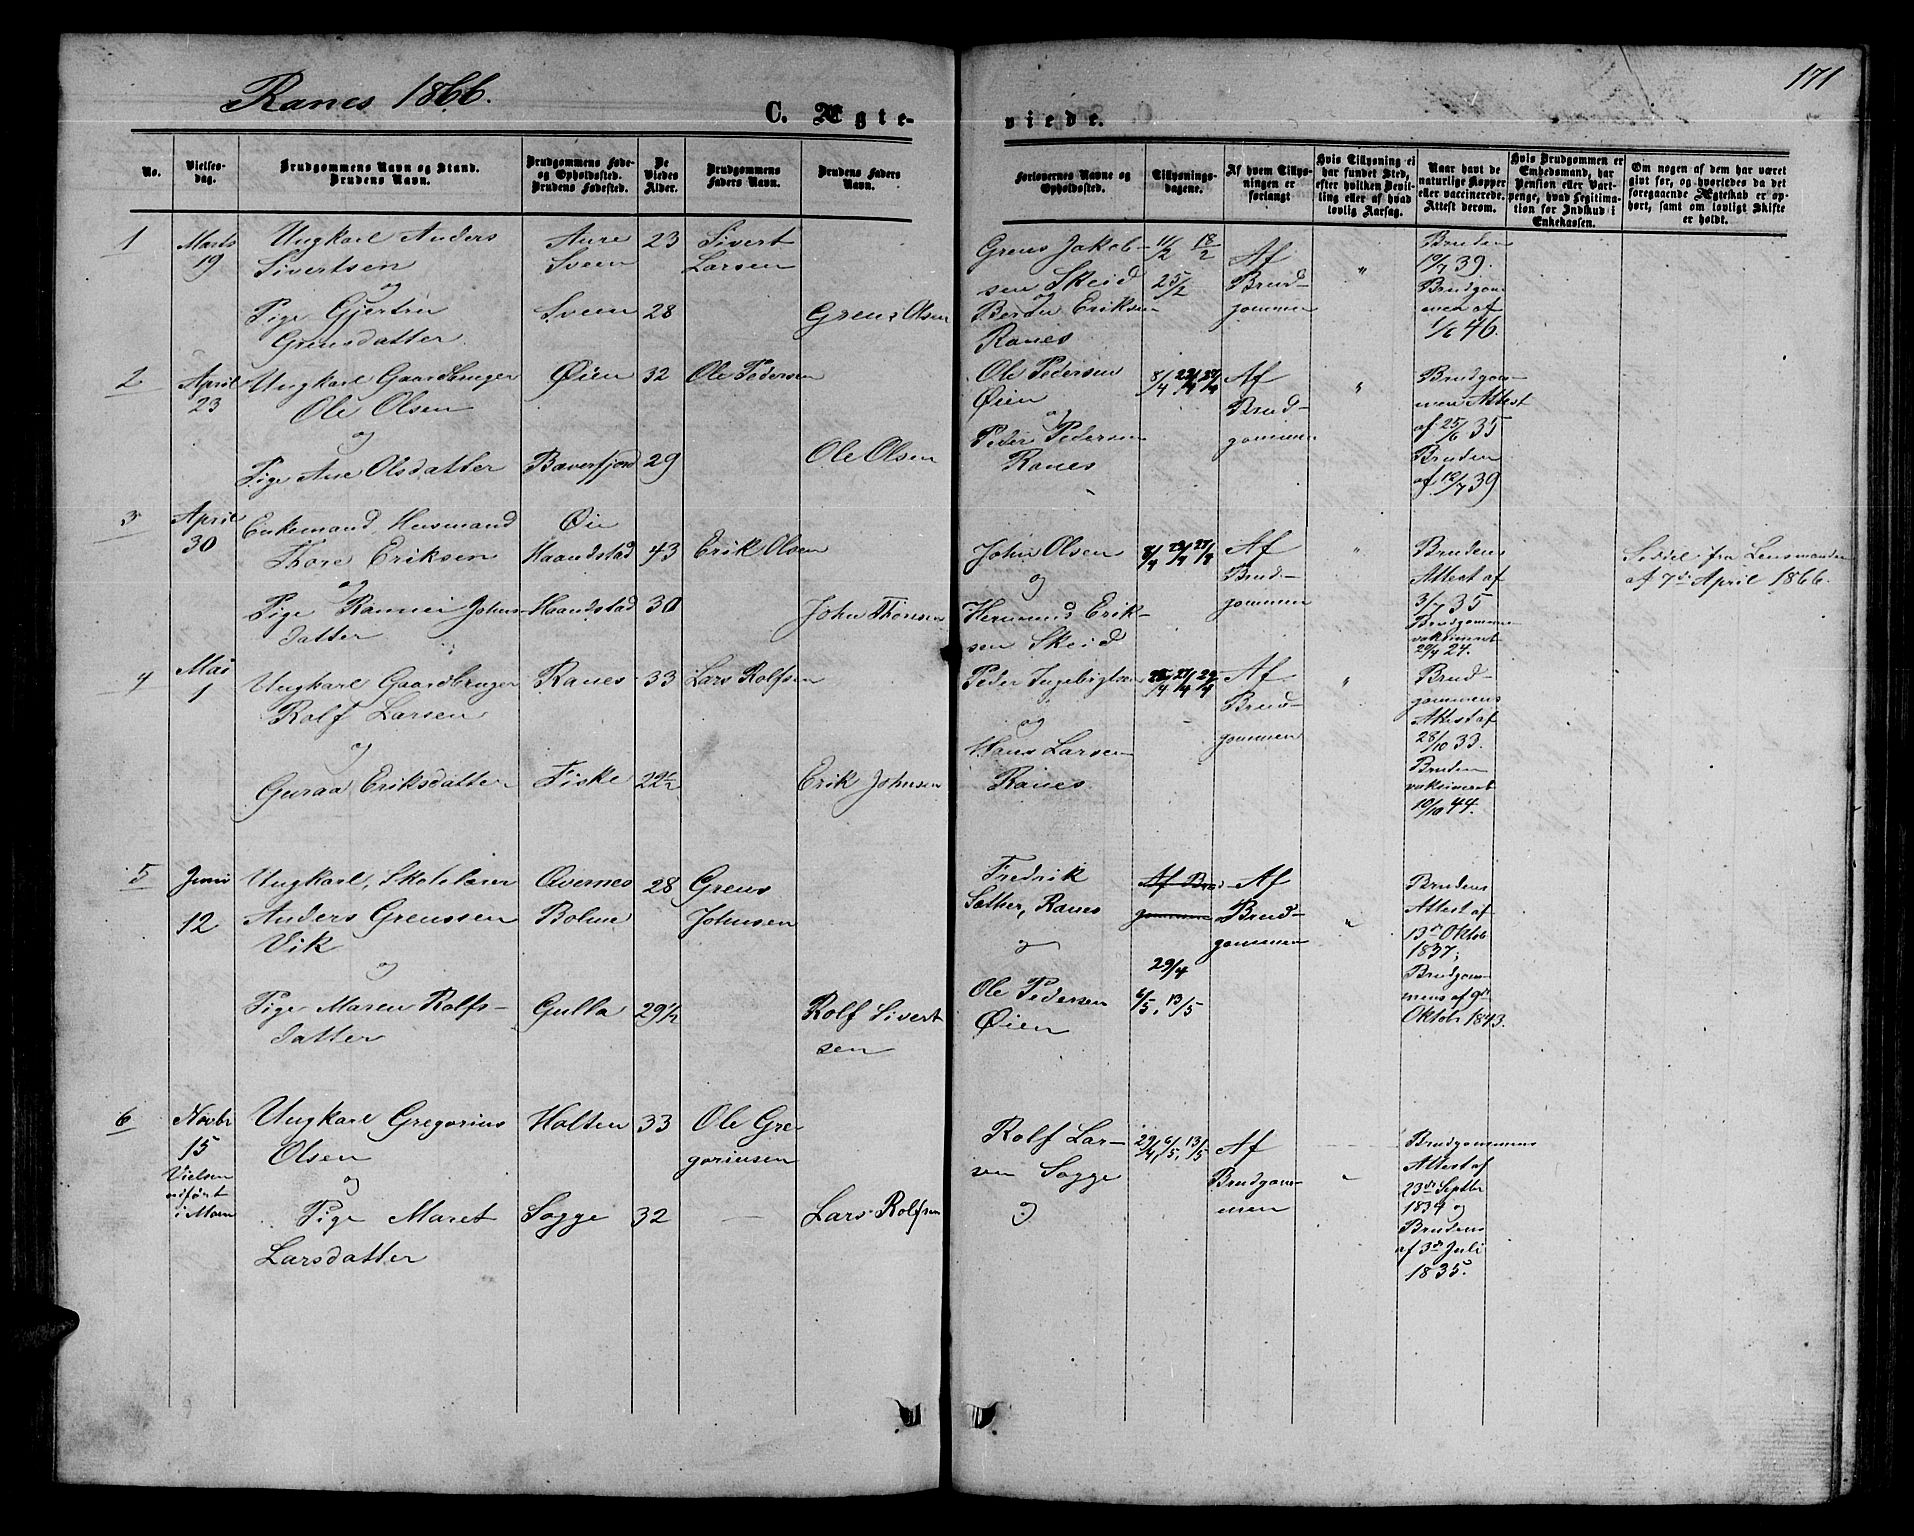 Ranes 1866.
171
C. Ægte-
viede.
No.
Vielses-
dag.
Brudgommens Navn og Stand.
Brudens Navn.
Brudgommens Føde-
og Opholdssted.
Brudens Fødested.
De
Viedes
Alder.
Brudgommens
Faders Navn.
Brudens Faders
Navn.
Forlovernes Navne og
Opholdssted.
Tillysnings-
dagene.
Af hvem Tillys-
ningen er
forlangt
Hvis Tillysning ei
har fundet Sted,
efter hvilken Bevil-
ling eller af hvad
lovlig Aarsag.
Naar havt de
naturlige Kopper
eller vaccinerede.
Attest derom.
Hvis Brudgommen er
Embedsmand, har
Pension eller Vart-
penge, hvad Legitima-
tion for Indskud i
Enkekassen.
Om nogen af dem har været
givt før, og hvorledes da det
foregaaende Ægteskab er op-
hørt, samt om lovligt Skifte
er holdt.
1
Marts
19
Ungkarl Anders
Sivertsen
og
Pige Gjertru
Grensdatter
Aure
Sveen
Sveen
23
28
Sivert
Larsen
Grens Olsen
Grens Jakob-
sen Skeid
og
Berdu Eriksen
Ranes
11/2 18/2
25/2
Af
Brud-
gommen
"
Bruden
19/7 39.
Brudgom-
men af
1/6 46.
2
April
23
Ungkarl Gaardbruger
Ole Olsen
og
Pige Ane Olsdatter
Øien
Bæverfjord
32
29
Ole Pedersen
Ole Olsen
Ole Pedersen
Øien
og
Peder Pedersen
Ranes
8/4 22/4 27/4
Af
Brud-
gommen
"
Brudgom-
men Attest
af 25/6 35
Bruden
af 12/7 39
3
April
30
Enkemand Husmand
Thore Eriksen
og
Pige Rannei Johns-
datter
Øie
Haandstad
Haandstad
43
30
Erik Olsen
John Thoresen
John Olsen
og
Hermund Erik-
sen Skeid
8/4 22/4 27/4
Af
Brud-
gommen
"
Brudens
Attest af
3/7 35
Brudgommen
vaksineret
29/9 24.
Seddel fra Lensmanden
af 7de April 1866.
4
Mai
1
Ungkarl Gaardbruger
Rolf Larsen
og
Guraa Eriksdatter
Ranes
Fiske
33
22½
Lars Rolfsen
Erik Johnsen
Peder Ingebrigtsen
og
Hans Larsen
Ranes
22/4 27/4 29/4
Af
Brud-
gommen
"
Brud
gommens
Attest af
28/10 33.
Bruden
vaksineret
10/10 44.
5
Juni
12
Ungkarl, Skolelærer
Anders Grenssen
Vik
og
Pige Maren Rolfs-
datter
Øvernes
Bolme
Gulla
28
29½
Grens
Johnsen
Rolf Sivert
sen
Fredrik
Sæther, Ranes
og
Ole Pedersen
Øien
Af Brud-
gommen
29/4
6/5, 13/5
Af
Brud-
gommen
"
Brudens
Attest af
13de Oktob
1837;
Brudgom-
mens af 9de
Oktobr 1843.
6
Novbr
15
Vielsen
udført
i Moen
Ungkarl Gregorius
Olsen
og
Pige Maret
Larsdatter
Holten
Sogge
33
32
Ole Gre
goriusen
Lars Rolfsen
Rolf Lar-
sen Sogge
og
29/4, 6/5, 13/5
Af
Brudgom-
men
"
Brudgommens
Attest af
23de Septbr
1834 og
Brudens
af 3de Juli
1835.